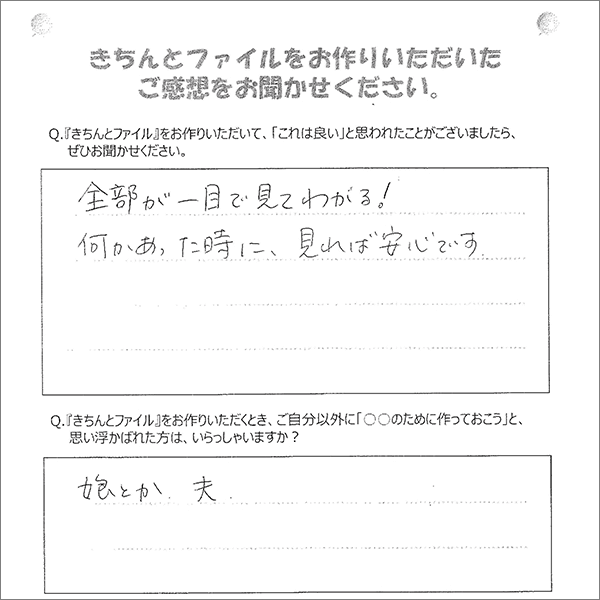 きちんとファイルをお作りいただいた
ご感想をお聞かせください。
Q.『きちんとファイル』をお作りいただいて、「これは良い」と思われたことがございましたら、
ぜひお聞かせください。
全部が一目で見てわかる!
何かあった時に、見れば安心です.
Q.『きちんとファイル』をお作りいただくとき、ご自分以外に「○○のために作っておこう」と、
思い浮かばれた方は、いらっしゃいますか？
娘とか、夫.